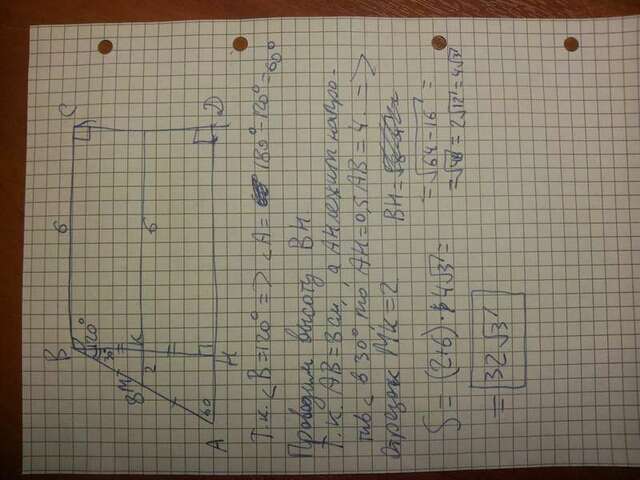 B
6
C
120°
30
8
M
K
2
6
60
A
H
D
Т.к. <B=120° => <A= 180°-120°=60°
Проводим высоту BH
Т.к. AB=8см, а AH лежит напро-
тив < в 30° то AH=0,5AB=4 =>
Отрезок MK=2 BH=
=√64-16=
=√48=2√12=4√3
S = (2+6)·4√3 =
= 32√3